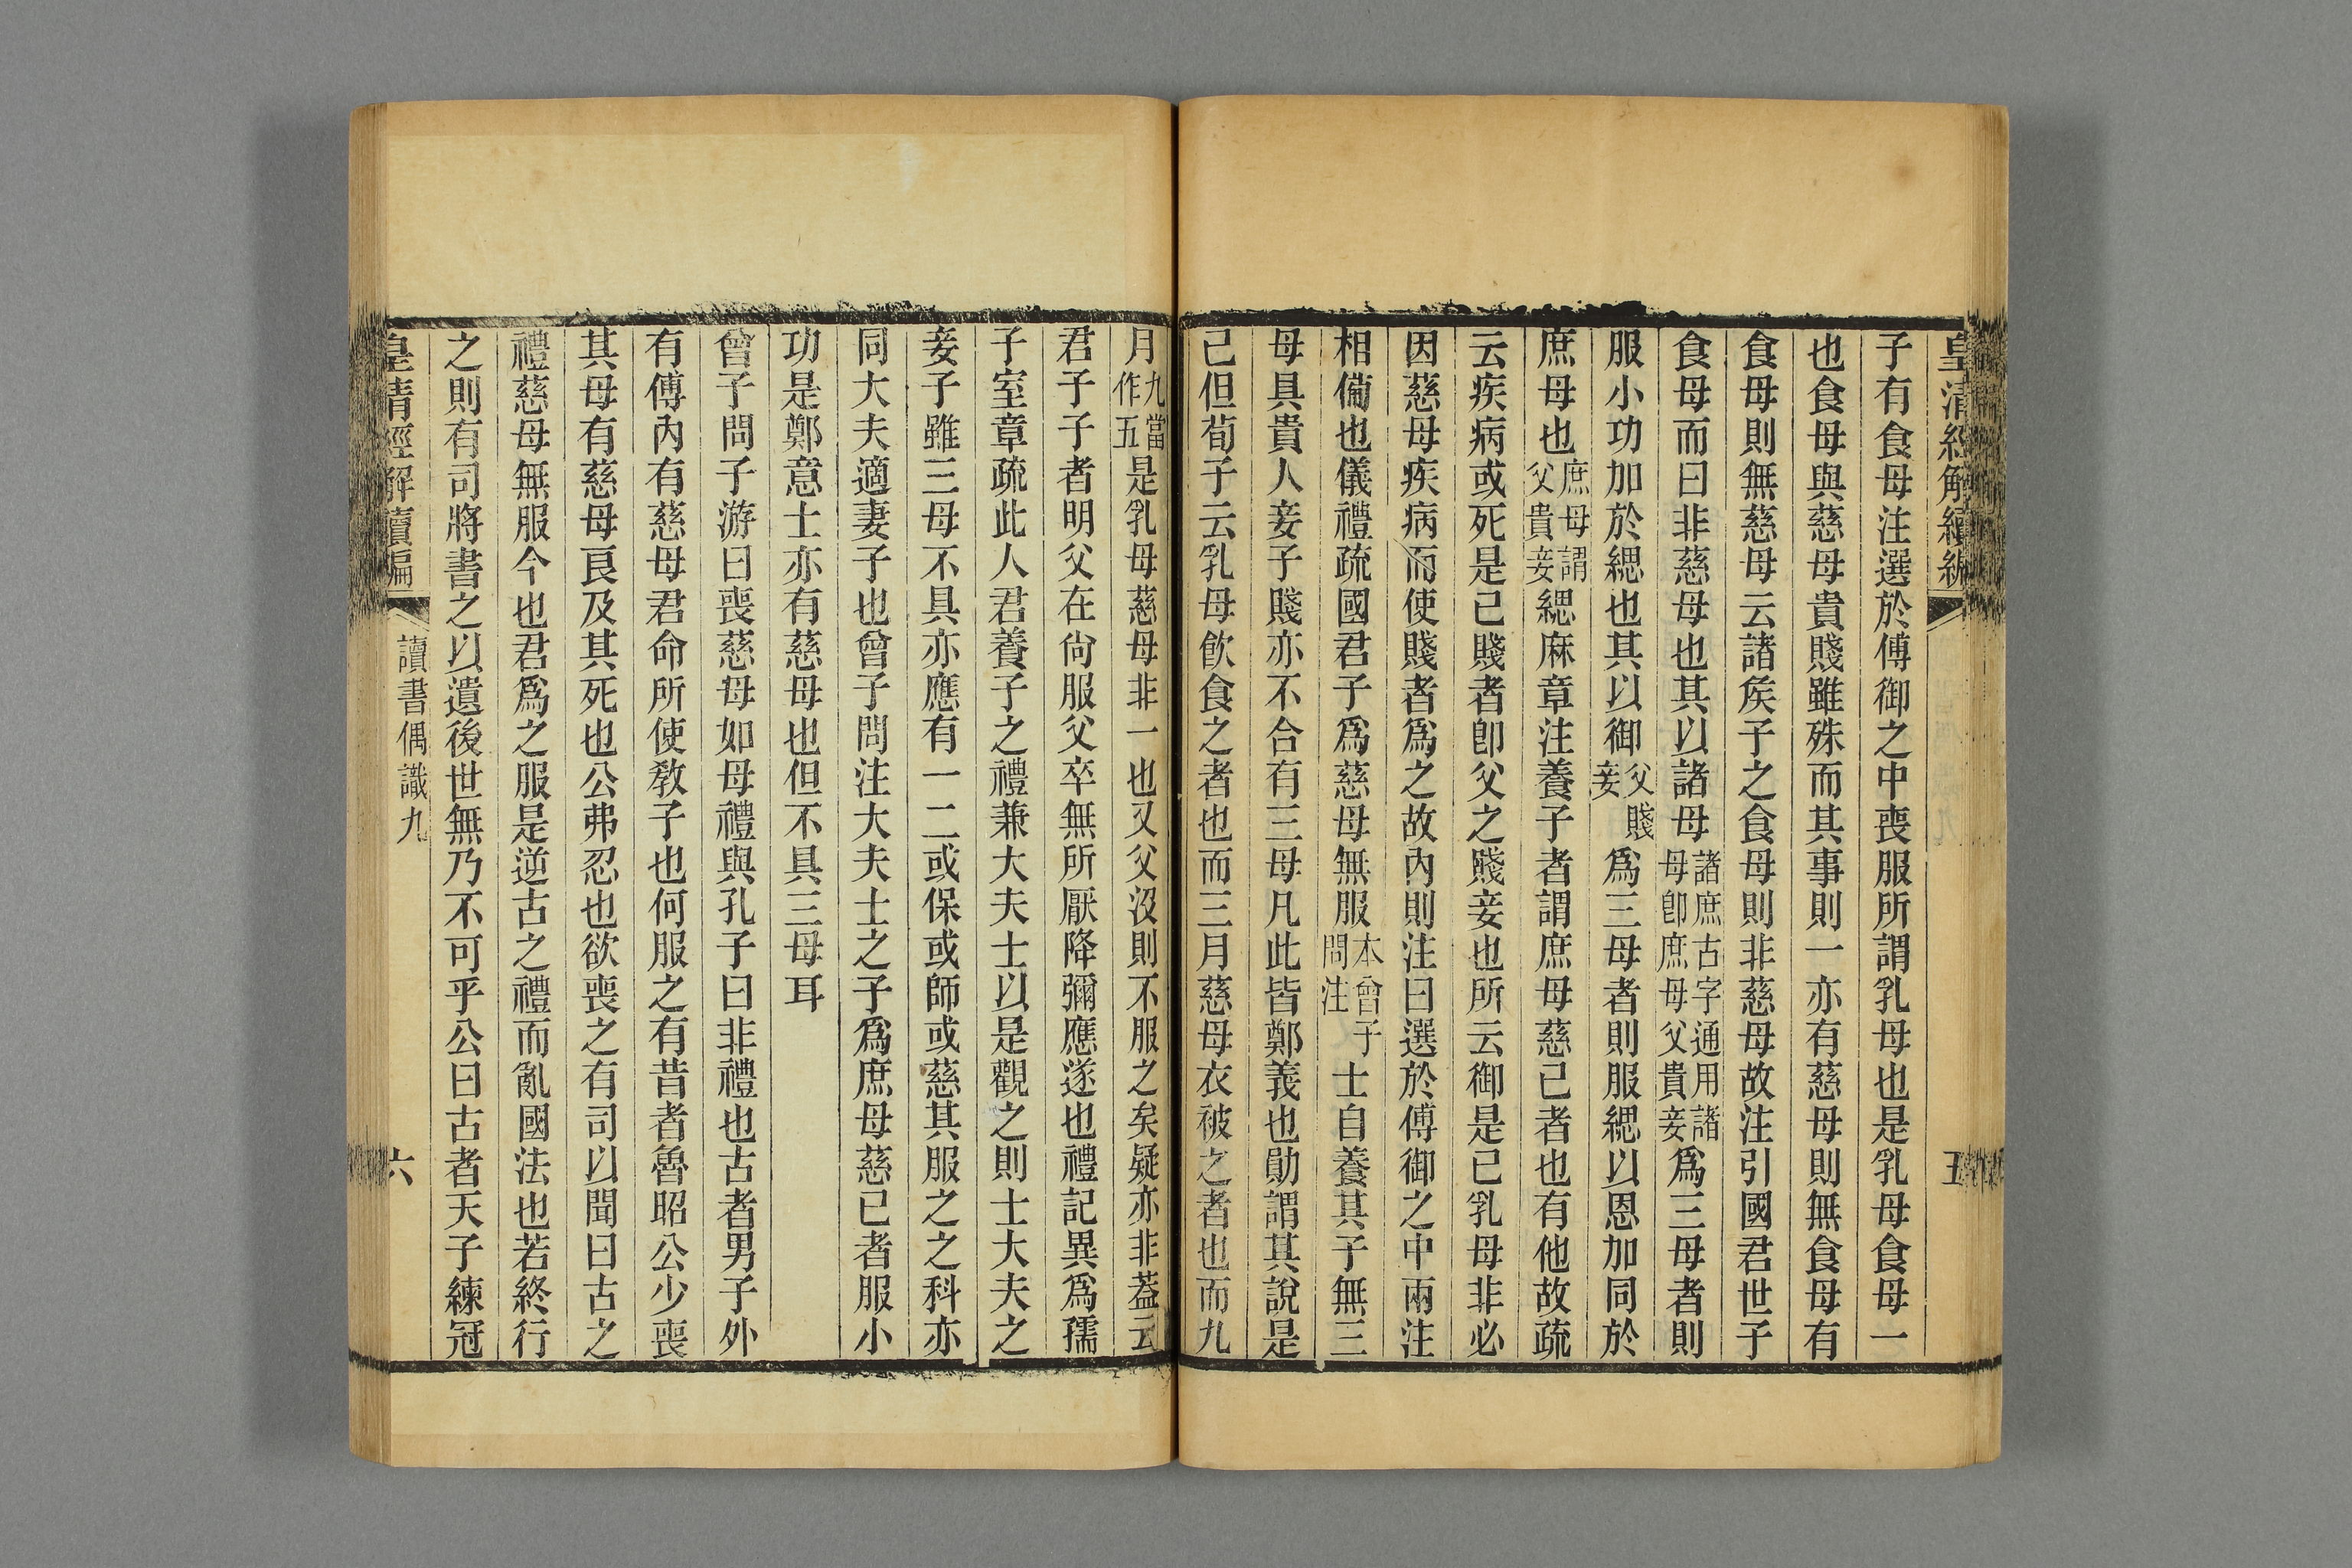 皇清經解續編
五
子有食母注選於傅御之中喪服所謂乳母也是乳母食母一
也食母與慈母貴賤雖殊而其事則一亦有慈母則無食母有
食母則無慈母云諸矦子之食母則非慈母故注引國君世子
食母而曰非慈母也其以諸母諸庶古字通用諸母卽庶母父貴妾爲三母者則
服小功加於緦也其以御父賤妾爲三母者則服緦以恩加同於
庶母也庶母謂父貴妾緦麻章注養子者謂庶母慈己者也有他故疏
云疾病或死是己賤者卽父之賤妾也所云御是已乳母非必
因慈母疾病而使賤者爲之故內則注曰選於傅御之中兩注
相備也儀禮疏國君子爲慈母無服本曾子問注士自養其子無三
母具貴人妾子賤亦不合有三母凡此皆鄭義也勛謂其說是
己但荀子云乳母飮食之者也而三月慈母衣被之者也而九
月九當作五是乳母慈母非一也又父沒則不服之矣疑亦非葢云
君子子者明父在尙服父卒無所厭降彌應遂也禮記異爲孺
子室章疏此人君養子之禮兼大夫士以是觀之則士大夫之
妾子雖三母不具亦應有一二或保或師或慈其服之之科亦
同大夫適妻子也曾子問注大夫士之子爲庶母慈已者服小
功是鄭意士亦有慈母也但不具三母耳
曾子問子游曰喪慈母如母禮與孔子曰非禮也古者男子外
有傅內有慈母君命所使敎子也何服之有昔者魯昭公少喪
其母有慈母良及其死也公弗忍也欲喪之有司以聞曰古之
禮慈母無服今也君爲之服是逆古之禮而亂國法也若終行
之則有司將書之以遺後世無乃不可乎公曰古者天子練冠
皇清經解續編
讀書偶識九
六